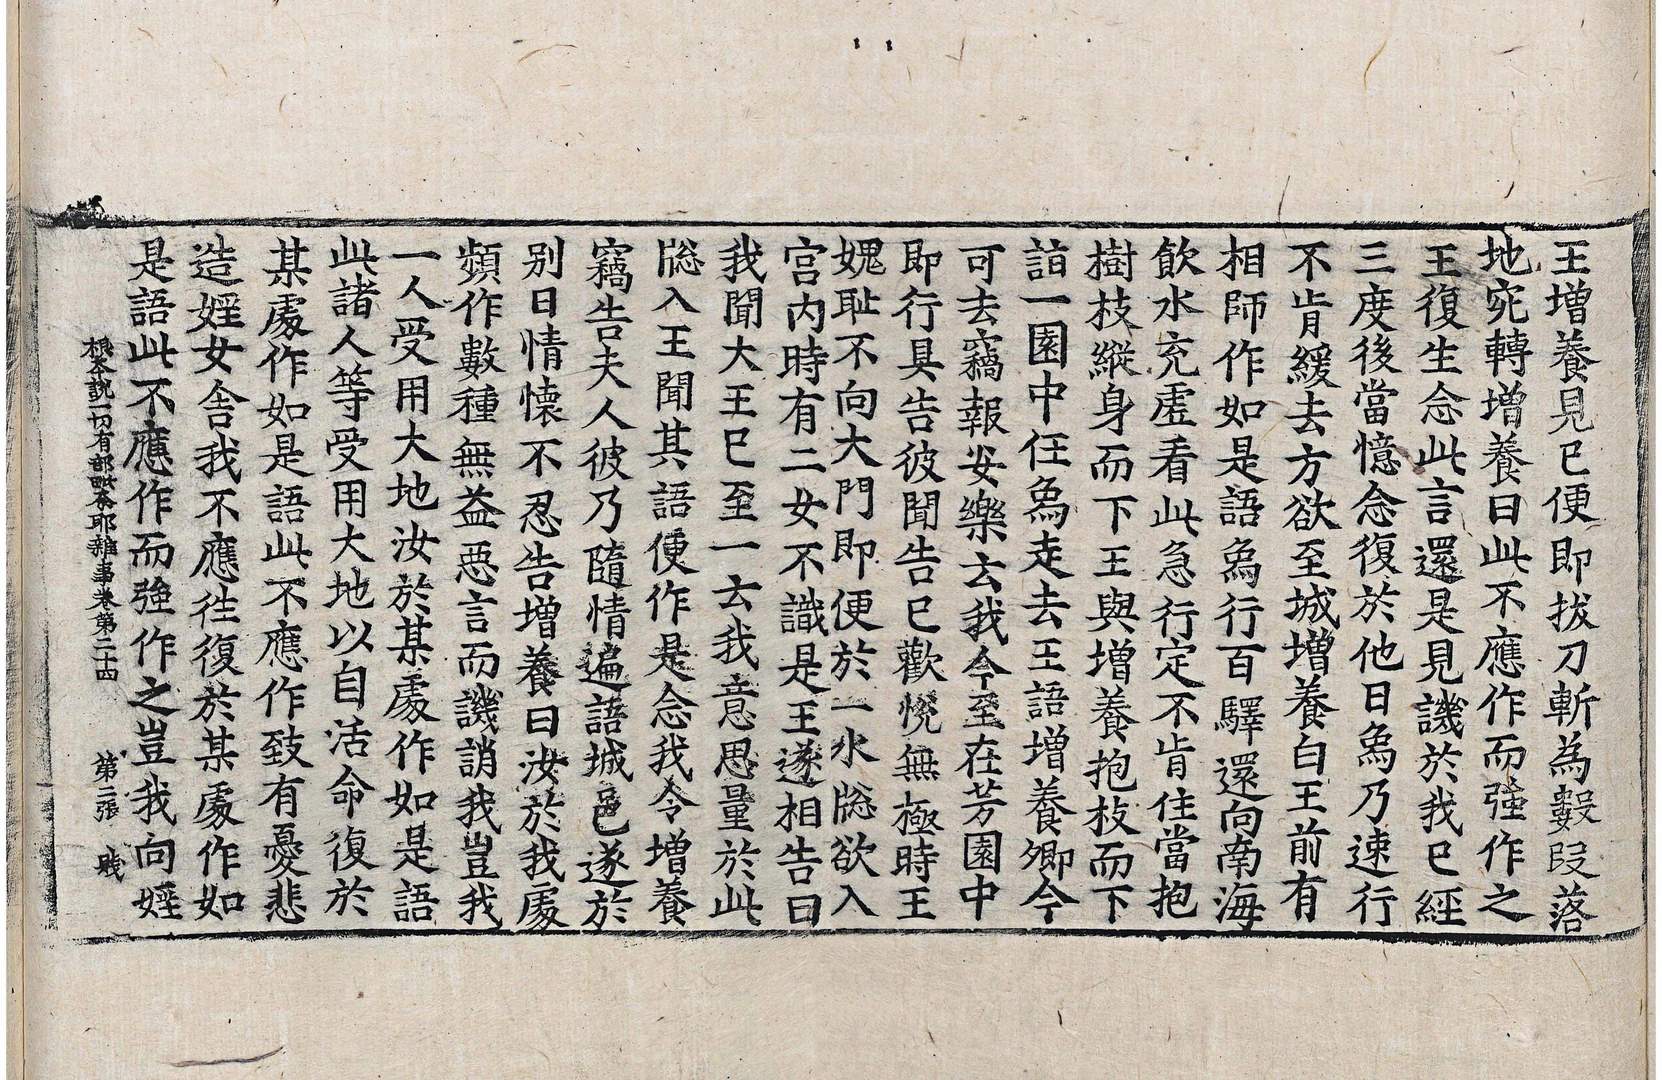 王增養見已便即拔刀斬為數段落
地宛轉增養曰此不應作而強作之
王復生念此言還是見譏於我已經
三度後當憶念復於他日為乃速行
不肯緩去方欲至城增養白王前有
相師作如是語為行百驛還向南海
飲水充虛看此急行定不肯住當抱
樹枝縱身而下王與增養抱枝而下
詣一園中任為走去王語增養卿今
可去竊報安樂云我今至在芳園中
即行具告彼聞告已歡悅無極時王
媿恥不向大門即便於一水牎欲入
宮內時有二女不識是王遂相告曰
我聞大王已至一云我意思量於此
牎入王聞其語便作是念我令增養
竊告夫人彼乃隨情遍語城邑遂於
別日情懷不忍告增養曰汝於我處
頻作數種無益惡言而譏誚我豈我
一人受用大地汝於某處作如是語
此諸人等受用大地以自活命復於
某處作如是語此不應作致有憂悲
造婬女舍我不應往復於某處作如
是語此不應作而強作之豈我向婬
根本說一切有部毗奈耶雜事卷第二十四 第二張 賤